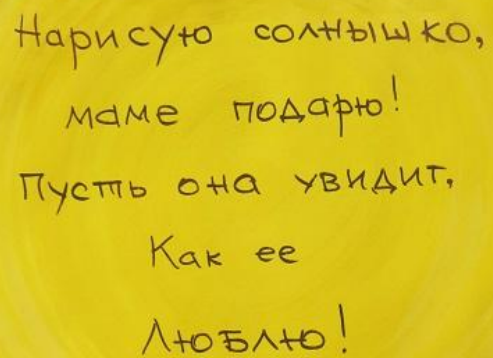 Нарисую солнышко,
маме подарю!
Пусть она увидит,
Как ее
Люблю!